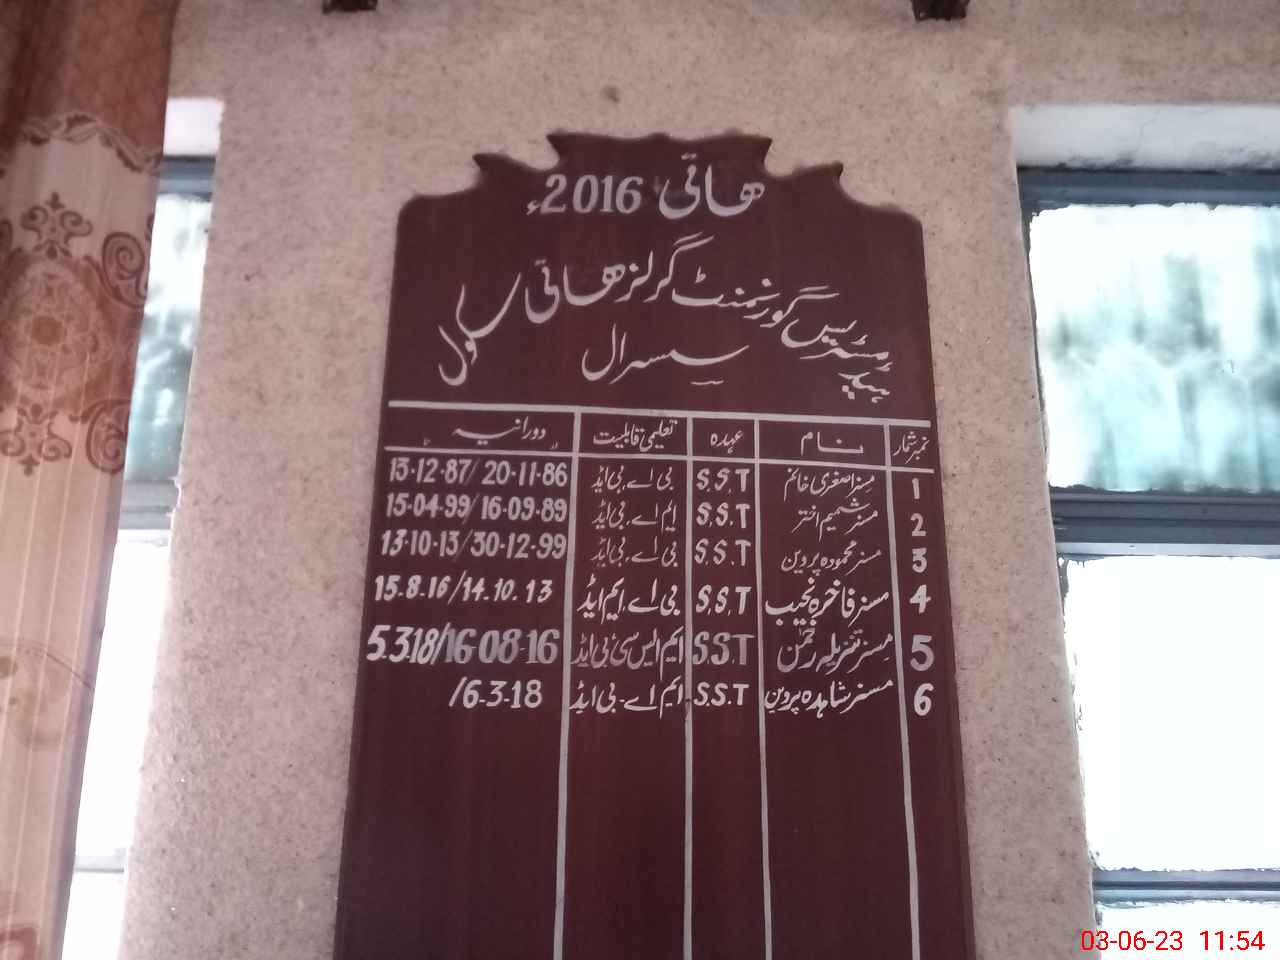 ھائی 2016ء
ہیڈ مسٹریس گورنمنٹ گرلز ھائی سکول
سسرال
نمبر شمار نام عہدہ تعلیمی قابلیت دورانیہ
1 مسز اصغری خانم S.S.T بی اے، بی ایڈ 20-11-86 / 13-12-87
2 مسز شمیم اختر S.S.T ایم اے، بی ایڈ 16-09-89 / 15-04-99
3 مسز محمودہ پروین S.S.T بی اے، بی ایڈ 30-12-99 / 13-10-13
4 مسز فاخرہ نجیب S.S.T بی اے، ایم ایڈ 14.10.13 / 15.8.16
5 مسز تنزیلہ رحمٰن S.S.T ایم ایس سی بی ایڈ 16-08-16 / 5.3.18
6 مسز شاہدہ پروین S.S.T ایم اے - بی ایڈ 6-3-18 /
03-06-23 11:54